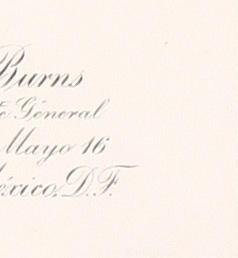 Burns
Général
Mayo 16
México, D.F.